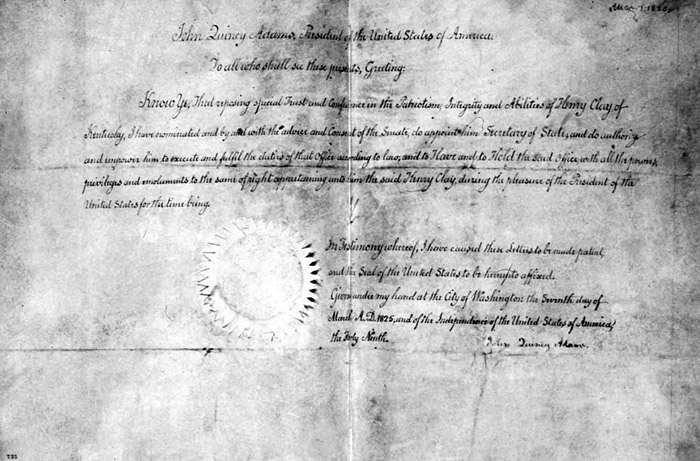 Mar 7, 1825
John Quincy Adams, President of the United States of America.
To all who shall see these presents, Greeting:
Know Ye, That reposing special Trust and Confidence in the Patriotism, Integrity and Abilities of Henry Clay of
Kentucky, I have nominated and by and with the advice and Consent of the Senate, do appoint him Secretary of State, and do authorize
and impower him to execute and fulfil the duties of that Office according to law; and to Have and to Hold the said Office, with all the powers,
privileges and emoluments to the same of right appertaining unto him the said Henry Clay, during the pleasure of the President of the
United States for the time being.
In Testimony whereof, I have caused these Letters to be made patent,
and the Seal of the United States to be hereunto affixed.
Given under my hand at the City of Washington the Seventh day of
March A.D. 1825; and of the Independence of the United States of America;
the Forty Ninth.
John Quincy Adams.
735